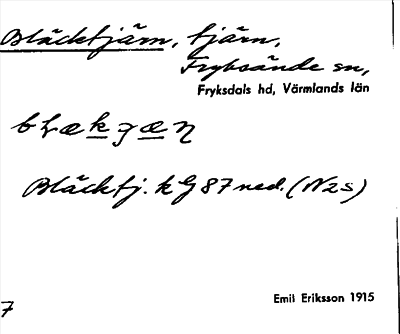 Bläcktjärn, tjärn,
Fryksände sn,
Fryksdals hd, Värmlands län
Bläcktj. k G 87 ned. (N2s)
Emil Eriksson 1915
7